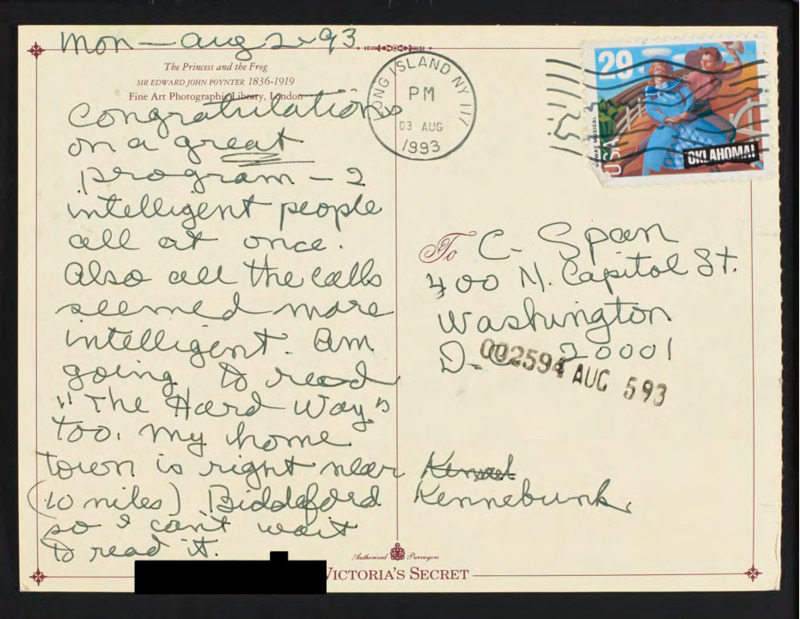 Mon - Aug 2 - 93
The Princess and the Frog
SIR EDWARD JOHN POYNTER 1836-1919
Fine Art Photographic Library, London
Congratulations
on a great
program - 2
intelligent people
all at once.
Also all the calls
seemed more
intelligent. Am
going to read
"The Hard Way"
too. My home
town is right near
(10 miles) Biddeford Kennebunk,
so I can't wait
to read it.
LONG ISLAND NY 117
PM
03 AUG
1993
29
USA
OKLAHOMA!
To C-Span
400 N. Capitol St.
Washington
D.C. 20001
002594 AUG 593
Authorized Purveyors
VICTORIA'S SECRET